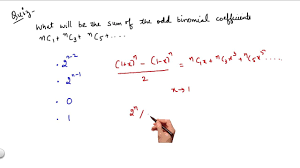 Quiz:
What will be the sum of the odd binomial coefficients
ⁿC₁ + ⁿC₃ + ⁿC₅ + ....
• 2ⁿ⁻²
• 2ⁿ⁻¹
• 0
• 1
(1+x)ⁿ - (1-x)ⁿ / 2 = ⁿC₁x + ⁿC₃x³ + ⁿC₅x⁵ ....
x → 1
2ⁿ /